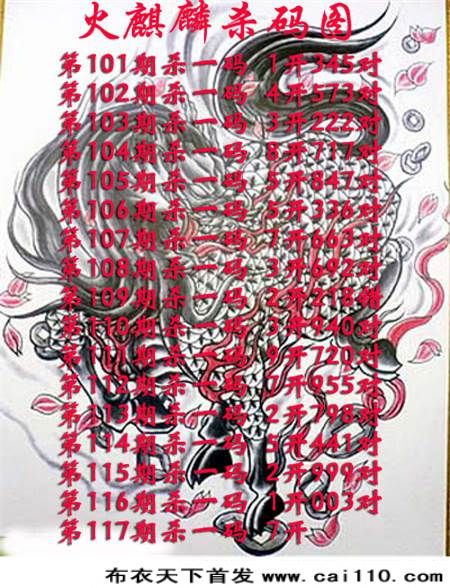 火麒麟杀码图
第101期杀一码 1开345对
第102期杀一码 4开573对
第103期杀一码 3开222对
第104期杀一码 8开717对
第105期杀一码 5开847对
第106期杀一码 5开336对
第107期杀一码 7开663对
第108期杀一码 3开692对
第109期杀一码 2开218错
第110期杀一码 3开940对
第111期杀一码 9开720对
第112期杀一码 7开955对
第113期杀一码 2开798对
第114期杀一码 5开441对
第115期杀一码 2开999对
第116期杀一码 1开003对
第117期杀一码 7开
布衣天下首发 www.cai110.com